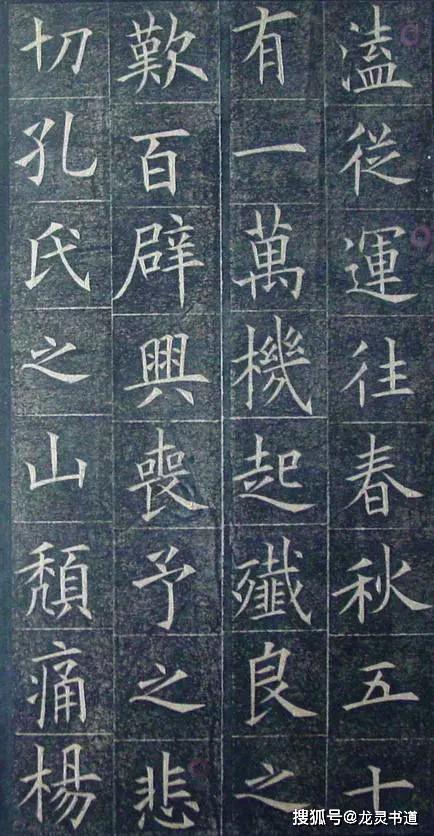 溘從運往春秋五十
有一萬機起殲良之
歎百辟興喪予之悲
切孔氏之山頹痛楊
搜狐号@龙灵书道